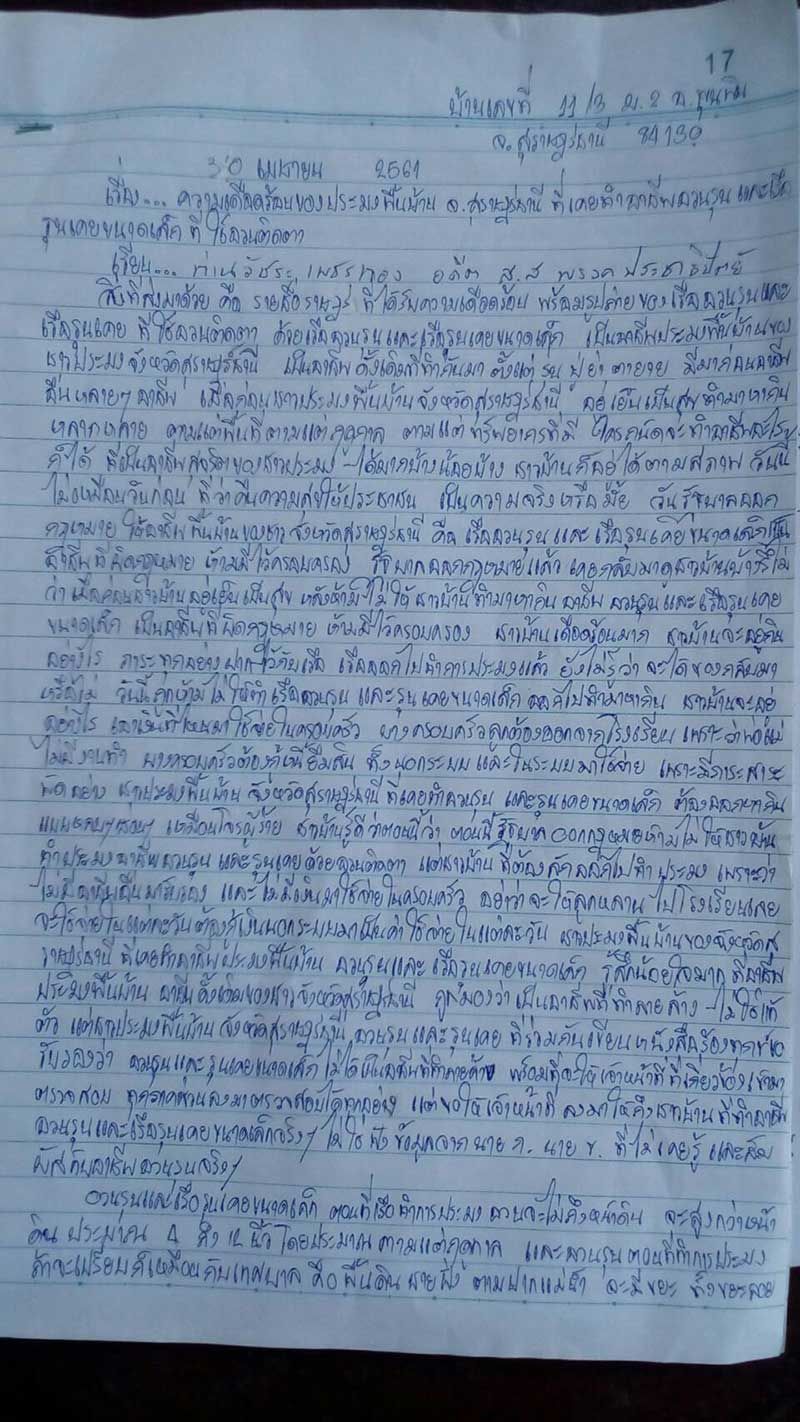 17
บ้านเลขที่ 11/3 ม.2 อ.พุนพิน
จ.สุราษฎร์ธานี 84130
30 เมษายน 2561
เรื่อง... ความเดือดร้อนของประมงพื้นบ้าน จ.สุราษฎร์ธานี ที่เคยทำอาชีพอวนรุน และเรือ
รุนเคยขนาดเล็ก ที่ใช้อวนติดตา
เรียน... ท่านวัชระ เพชรทอง อดีต ส.ส พรรค ประชาธิปัตย์
สิ่งที่ส่งมาด้วย คือ รายชื่อราษฎร์ ที่ได้รับความเดือดร้อน พร้อมรูปถ่ายของเรืออวนรุนและ
เรือรุนเคย ที่ใช้อวนติดตา ด้วยเรืออวนรุนและเรือรุนเคยขนาดเล็ก เป็นอาชีพประมงพื้นบ้านของ
ชาวประมงจังหวัดสุราษฎร์ธานี เป็นอาชีพดั้งเดิมที่ทำกันมา ตั้งแต่รุ่น ปู่ย่าตายาย มีมาก่อนอาชีพ
อื่นหลายๆอาชีพ เมื่อก่อนชาวประมงพื้นบ้านจังหวัดสุราษฎร์ธานี อยู่เย็นเป็นสุขทำมาหากิน
หลากหลาย ตามแต่พื้นที่ตามแต่ฤดูกาล ตามแต่ทรัพยากรที่มี ใครถนัดจะทำอาชีพอะไร
ก็ได้ ที่เป็นอาชีพสุจริตของชาวประมง ได้มากบ้างน้อยบ้าง ชาวบ้านก็อยู่ได้ตามสภาพ วันนี้
ไม่เหมือนวันก่อน ที่ว่าคืนความสุขให้ประชาชน เป็นความจริงหรือมั้ย วันรัฐบาลออก
กฎหมาย ให้อาชีพพื้นบ้านของชาวจังหวัดสุราษฎร์ธานี คือ เรืออวนรุน และเรือรุนเคยขนาดเล็กเป็น
อาชีพที่ผิดกฎหมาย ห้ามมีไว้ครอบครอง รัฐบาลออกกฎหมายแล้ว เคยกลับมาดูชาวบ้านบ้างรึไม่
ว่าเมื่อก่อนชาวบ้านอยู่เย็นเป็นสุข หลังห้ามไม่ให้ชาวบ้านทำมาหากินอาชีพ อวนรุนและเรือรุนเคย
ขนาดเล็ก เป็นอาชีพที่ผิดกฎหมาย ห้ามมีไว้ครอบครอง ชาวบ้านเดือดร้อนมาก ชาวบ้านจะอยู่กิน
อย่างไร ภาระทุกอย่างฝากไว้กับเรือ เรือออกไปทำการประมงแล้ว ยังไม่รู้ว่าจะได้ของกลับมา
หรือไม่ วันนี้ถูกห้ามไม่ให้ทำ เรืออวนรุน และรุนเคยขนาดเล็ก ออกไปทำมาหากิน ชาวบ้านจะอยู่
อย่างไร เอาเงินที่ไหนมาใช้จ่ายในครอบครัว บางครอบครัวลูกต้องออกจากโรงเรียน เพราะว่าพ่อแม่
ไม่มีงานทำ บางครอบครัวต้องกู้หนี้ยืมสิน ทั้งนอกระบบและในระบบมาใช้จ่าย เพราะมีภาระสาระ
พัดอย่าง ชาวประมงพื้นบ้าน จังหวัดสุราษฎร์ธานี ที่เคยทำอวนรุน และรุนเคยขนาดเล็ก ต้องออกหากิน
แบบหลบๆซ่อนๆ เหมือนโจรผู้ร้าย ชาวบ้านรู้ดีว่าตอนนี้ว่า ตอนนี้รัฐบาลออกกฎหมายห้ามไม่ให้ชาวบ้าน
ทำประมงอาชีพอวนรุน และรุนเคยด้วยอวนติดตา แต่ชาวบ้านที่ต้องลักออกไปทำประมง เพราะว่า
ไม่มีอาชีพอื่นมารองรอง และไม่มีเงินมาใช้จ่ายในครอบครัว อย่าว่าจะให้ลูกหลานไปโรงเรียนเลย
จะใช้จ่ายในแต่ละวันต้องกู้เงินนอกระบบมาเป็นค่าใช้จ่ายในแต่ละวัน ชาวประมงพื้นบ้านของจังหวัดสุ
ราษฎร์ธานี ที่เคยทำอาชีพประมงพื้นบ้าน อวนรุนและ เรือรุนเคยขนาดเล็ก รู้สึกน้อยใจมาก ที่อาชีพ
ประมงพื้นบ้าน อาชีพดั้งเดิมของชาวจังหวัดสุราษฎร์ธานี ถูกมองว่าเป็นอาชีพที่ทำลายล้าง ไม่ใช่แก้
ตัว แต่ชาวประมงพื้นบ้าน จังหวัดสุราษฎร์ธานี อวนรุนและรุนเคย ที่ร่วมกันเขียนหนังสือร้องทุกข์ขอ
รับรองว่า อวนรุนและรุนเคยขนาดเล็ก ไม่ได้เป็นอาชีพที่ทำลายล้าง พร้อมที่จะให้เจ้าหน้าที่ที่เกี่ยวข้องเข้ามา
ตรวจสอบ ทุกภาคส่วนลงมาตรวจสอบได้ทุกอย่าง แต่ขอให้เจ้าหน้าที่ลงมาให้ถึงชาวบ้านที่ทำอาชีพ
อวนรุนและเรือรุนเคยขนาดเล็กจริงๆ ไม่ใช่ฟังข้อมูลจาก นาย ก. นาย ข. ที่ไม่เคยรู้ และสัม
ผัสกับอาชีพอวนรุนจริงๆ
อวนรุนและเรือรุนเคยขนาดเล็ก ตอนที่เรือทำการประมง อวนจะไม่ถึงหน้าดิน จะสูงกว่าหน้า
ดิน ประมาณ 4 ถึง 12 นิ้ว โดยประมาณตามแต่ฤดูกาล และอวนรุนตอนที่ทำการประมง
ถ้าจะเปรียบก็เหมือนกับเทศบาล คือ พื้นดินชายฝั่ง ตามปากแม่น้ำ จะมีขยะ ทั้งขยะลอย